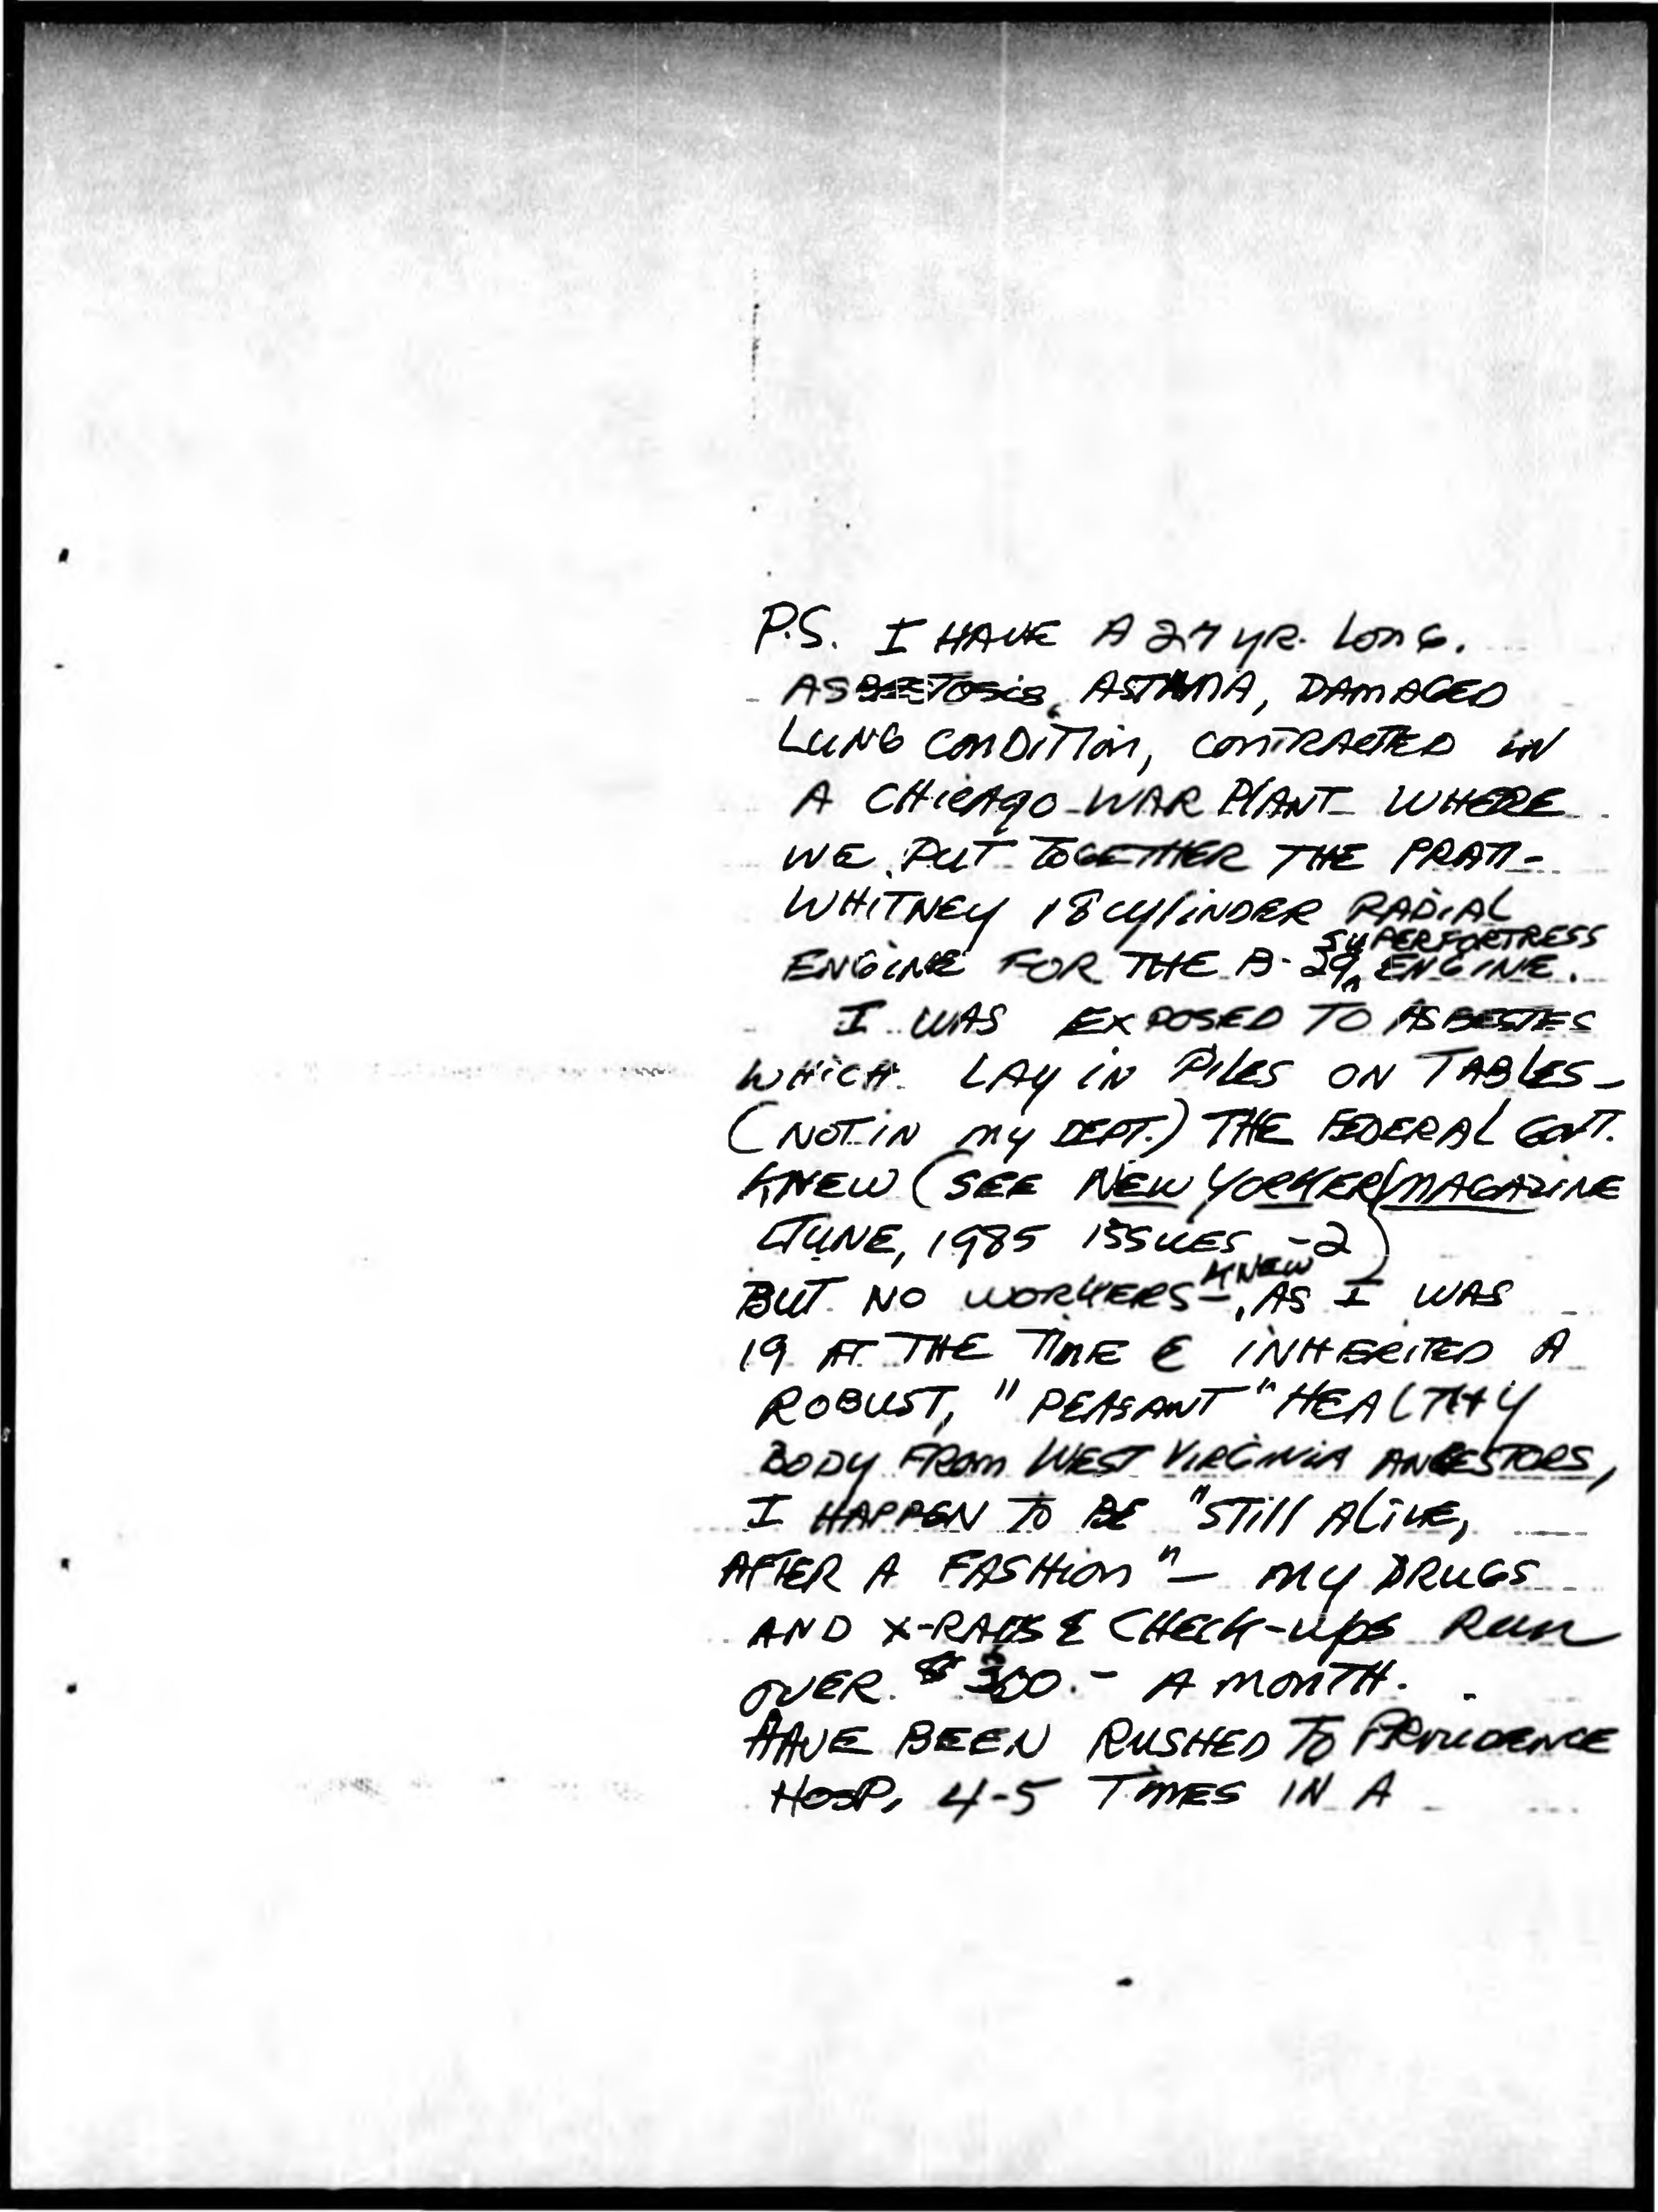 P.S. I HAVE A 27 YR. LONG.
ASBESTOSIS, ASTHMA, DAMAGED
LUNG CONDITION, CONTRACTED IN
A CHICAGO WAR PLANT WHERE
WE PUT TOGETHER THE PRATT-
WHITNEY 18 CYLINDER RADIAL
ENGINE FOR THE B-29 SUPERFORTRESS ENGINE.
I WAS EXPOSED TO ASBESTES
WHICH LAY IN PILES ON TABLES -
(NOT IN MY DEPT.) THE FEDERAL GOVT.
KNEW (SEE NEW YORKER/MAGAZINE
JUNE, 1985 ISSUES -2)
BUT NO WORKERS KNEW -, AS I WAS
19 AT THE TIME & INHERITED A
ROBUST, "PEASANT" HEALTHY
BODY FROM WEST VIRGINIA ANCESTORS,
I HAPPEN TO BE "STILL ALIVE,
AFTER A FASHION" - MY DRUGS
AND X-RAYS & CHECK-UPS RUN
OVER $300.- A MONTH.
HAVE BEEN RUSHED TO PROVIDENCE
HOSP, 4-5 TIMES IN A